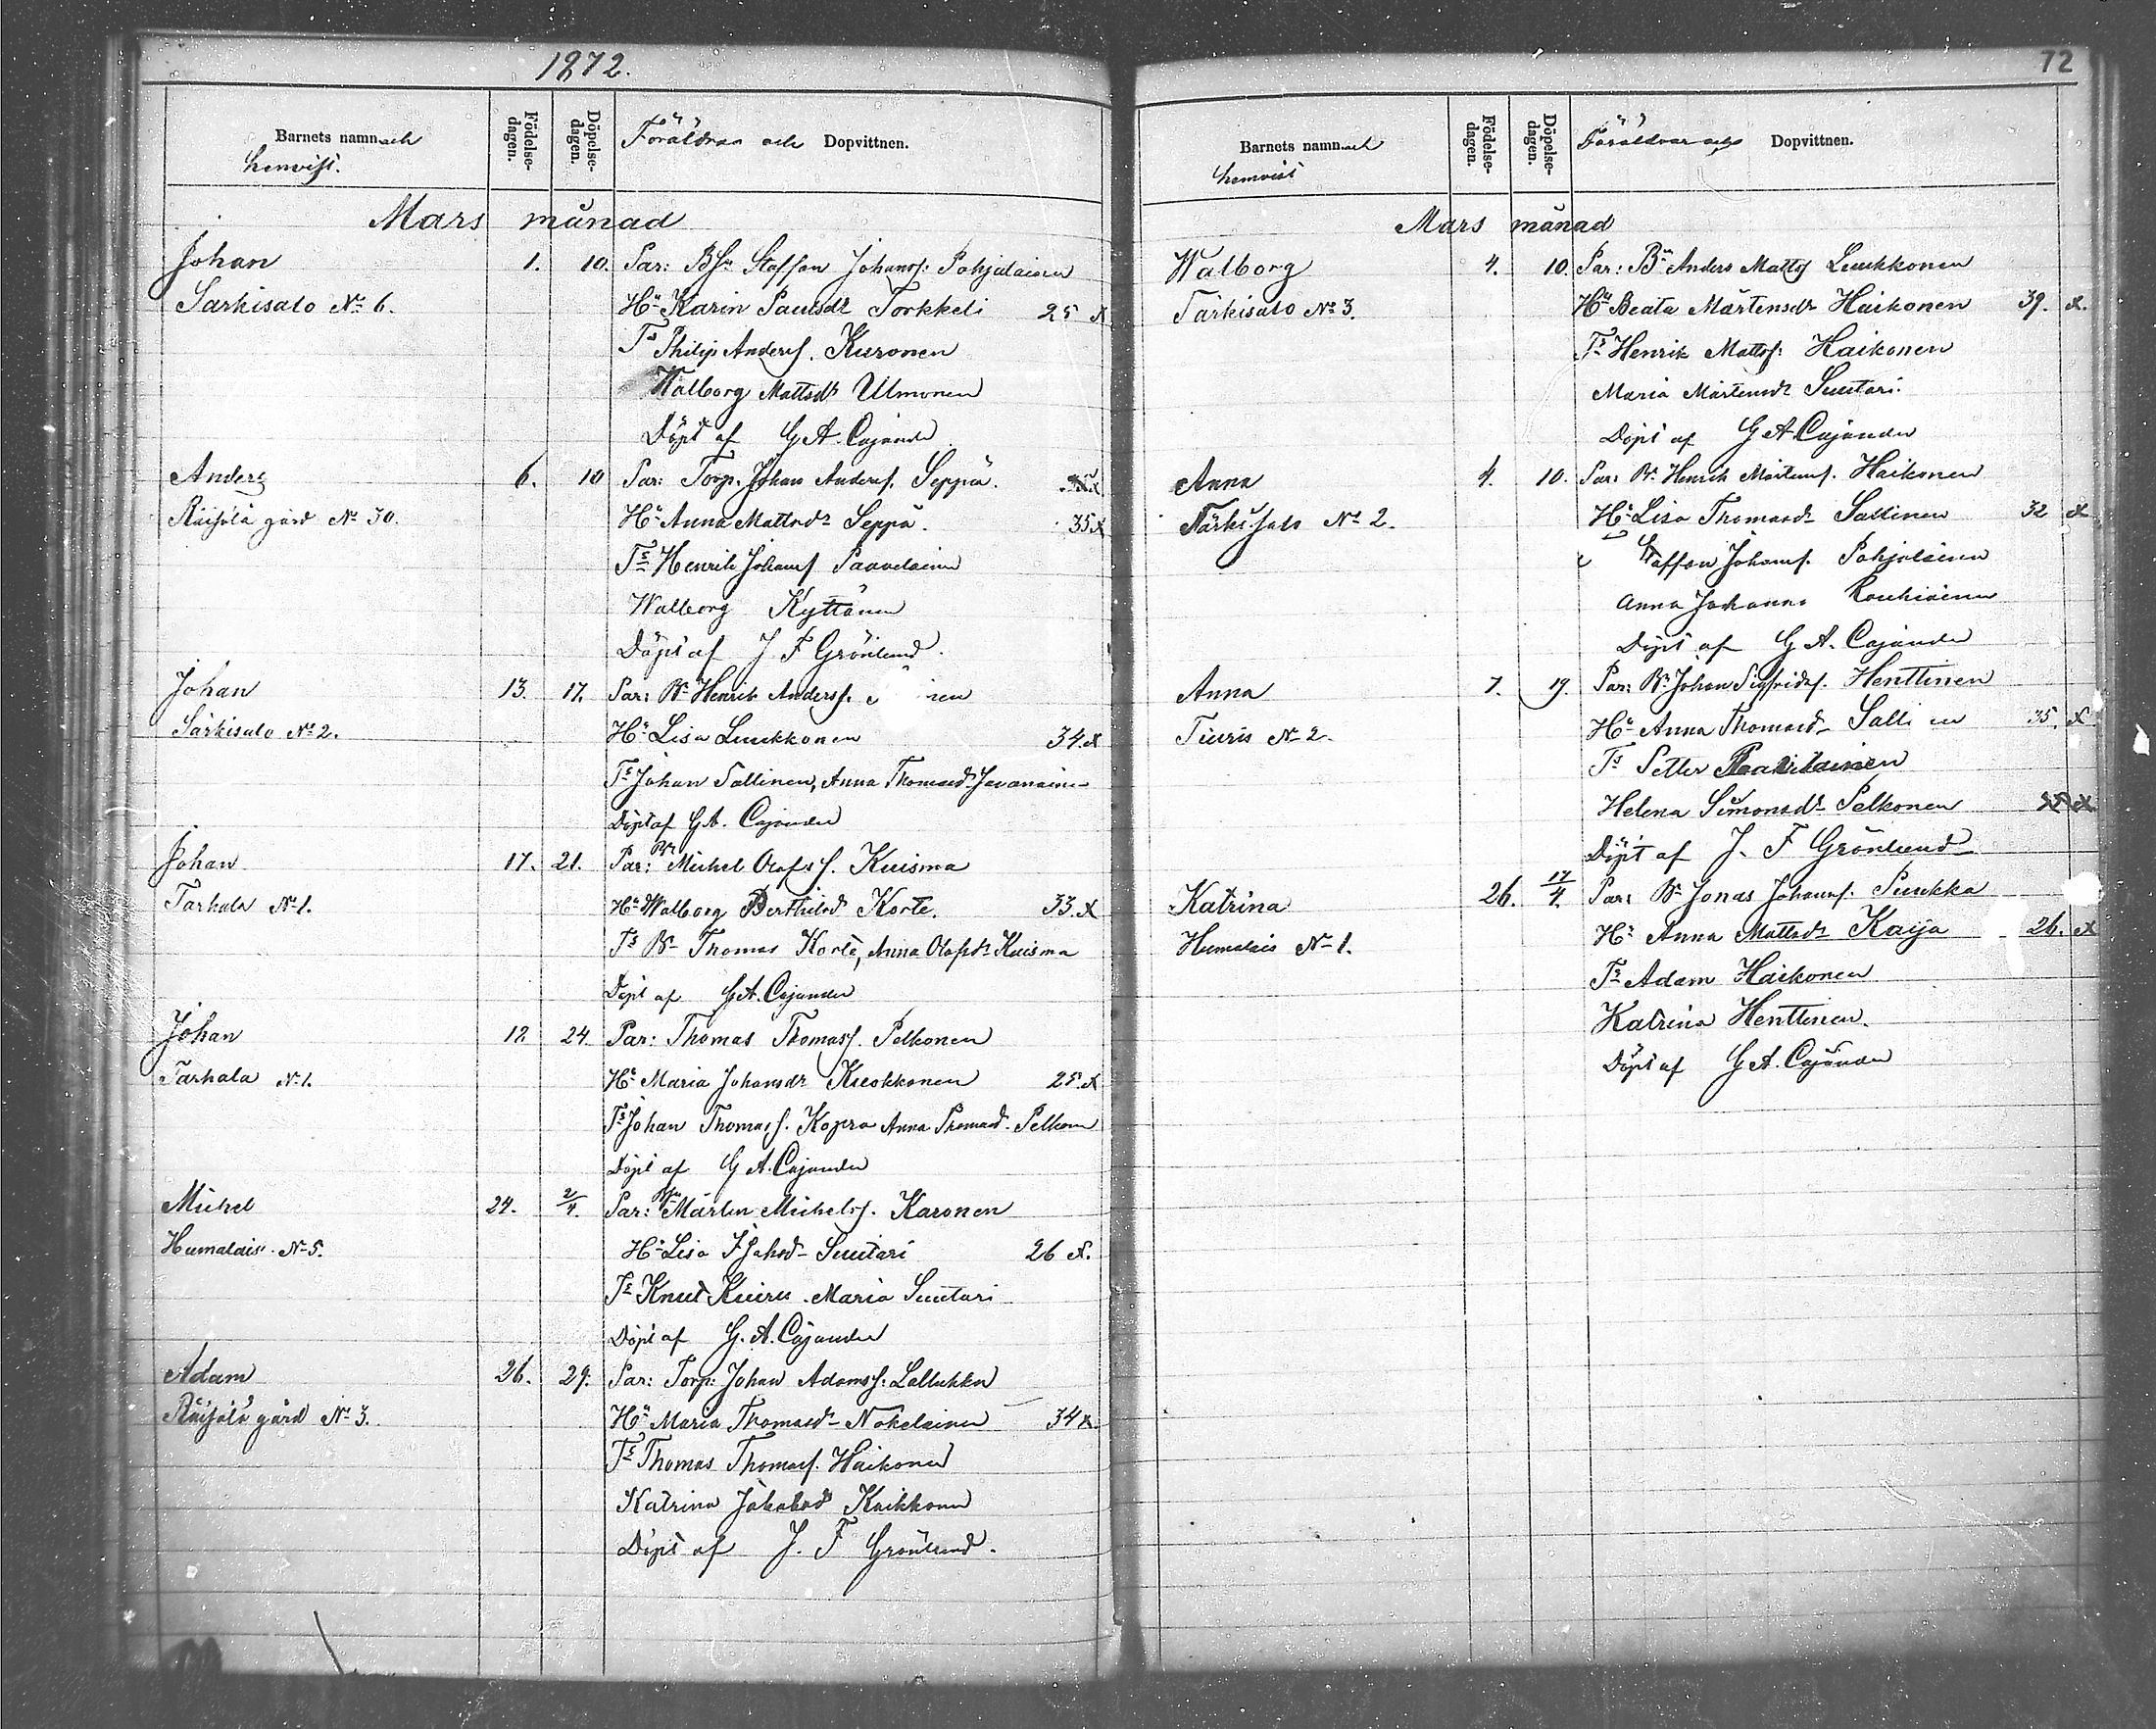 1872.
Barnets namn och
hemvist.
Födelse-
dagen.
Döpelse-
dagen.
Föräldrar och Dopvittnen.
Mars månad
Johan 1. 10. Par: Staffan Johansf: Pohjalainen
Särkisalo No 6. Hu Karin Paulsdr Torkkeli 25 x
Ts Philip Andersf. Kuronen
Walborg Mattsdr Ulmonen
Döpt af G A. Cajander
Anders 6. 10 Par: Torp. Johan Andersf. Seppä.
Räisälä gård No 30. Hu Anna Mattsdr Seppä. 35 x
Ts Henrik Johansf Paavolainen
Walborg Kyttönen
Döpt af J F Grönlund.
Johan 13. 17. Par: Bn Henrik Andersf. nen
Särkisalo No 2. Hu Lisa Luukkonen 34. x
Ts Johan Sallinen, Anna Thomasdr
Döpt af G A. Cajander
Johan 17. 21. Par: Bn Michel Olofsf. Kuisma
Tarhala No 1. Hu Walborg Berthilsd Korte. 33. x
Ts Bn Thomas Korte, Anna Olofsdr Kuisma
Döpt af G A. Cajander
Johan 12 24. Par: Thomas Thomasf. Pelkonen
Tarhala No 1. Hu Maria Johansdr Kuokkonen 25. x
Ts Johan Thomasf. Kopra Anna Thomasd. Pelkonen
Döpt af G A. Cajander
Michel 24. 2/4. Par: Mårten Michelsf. Karonen
Humalais No 5. Hu Lisa Suutari 26 x.
Ts Knut Kuiru Maria Suutari
Döpt af G. A. Cajander
Adam 26. 29. Par: Torp: Johan Adamsf: Lallukka
Räisälä gård No 3. Hu Maria Thomasdr Nokelainen 34 x
Ts Thomas Thomasf. Haikonen
Katrina Jakobsd Kaikkonen
Döpt af J. F Grönlund.
72
Barnets namn och
hemvist
Födelse-
dagen.
Döpelse-
dagen.
Föräldrar och Dopvittnen.
Mars månad
Walborg 4. 10. Par: Bn Anders Mattsf Luukkonen
Särkisalo No 3. Hu Beata Mårtensdr Haikonen 39. x.
Ts Henrik Mattsf: Haikonen
Maria Mårtensdr Suutari.
Döpt af G A Cajander
Anna 4. 10. Par: Bn Henrik Mårtensf. Haikonen
Särkisalo No 2. Hu Lisa Thomasdr Sallinen 32 x
Staffan Johansf. Pohjolainen
Anna Johanna Rouhiainen
Döpt af G A. Cajander
Anna 7. 19. Par: Bn Johan Sigfridsf. Henttinen
Tiuris No 2. Hu Anna Thomasdr Salli en 35. x
Ts Petter
Helena Simonsdr Pelkonen
Döpt af J. F Grönlund
Katrina 26. 17/4. Par: Bn Jonas Johansf. Puukka
Humalais No 1. Hu Anna Mattsdr Kaija 26. x
Ts Adam Haikonen
Katrina Henttinen.
Döpt af G A. Cajander